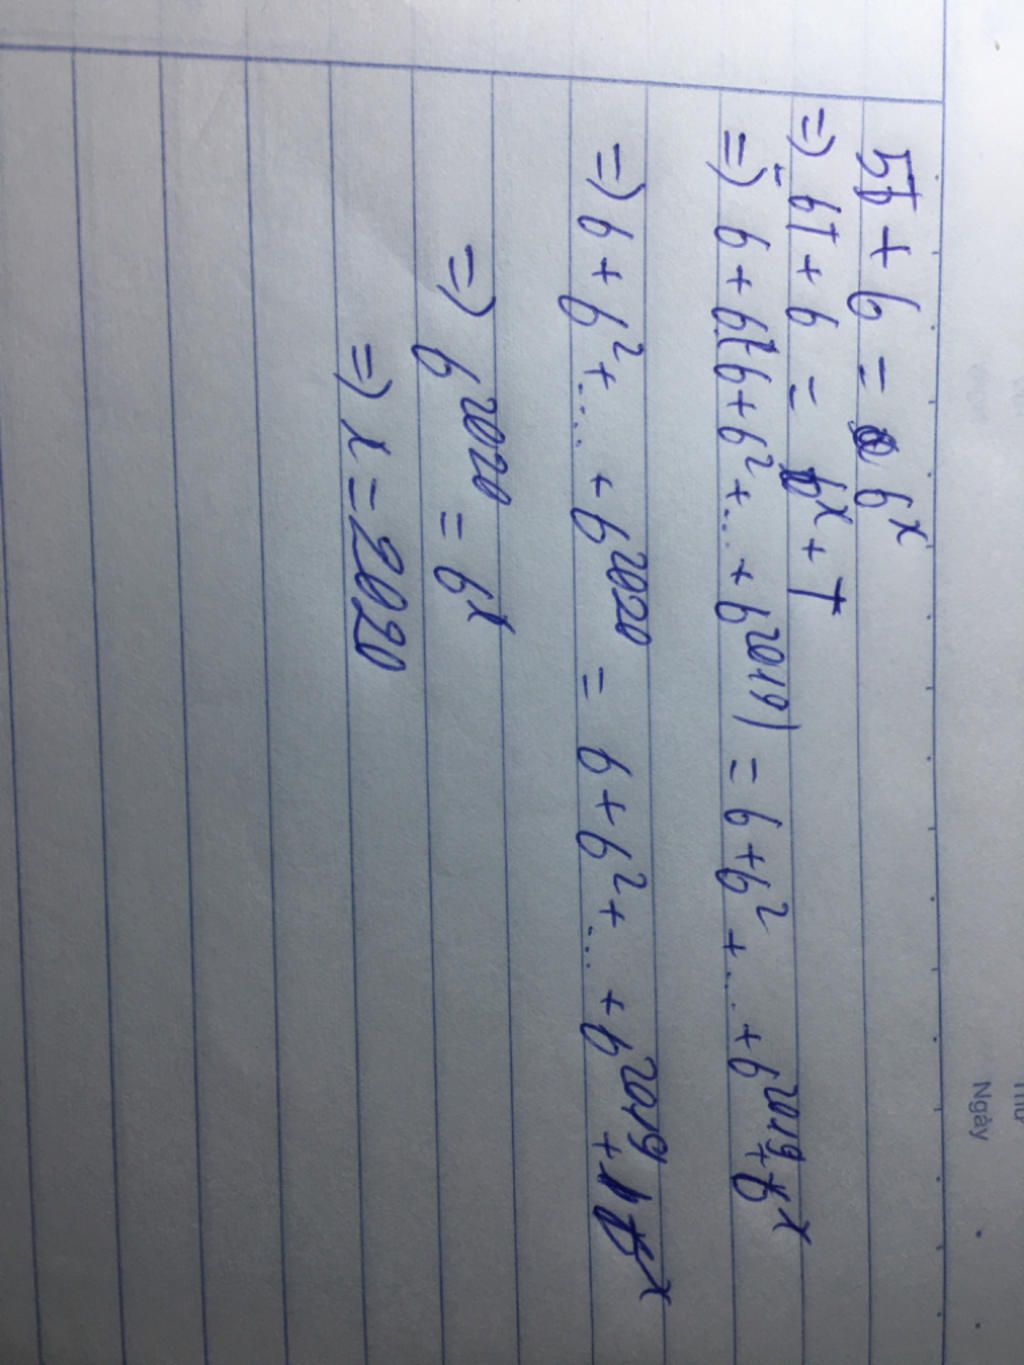 5T + 6 = 6^x
=) 6T + 6 = 6^x + T
=) 6 + 6(6 + 6^2 + ... + 6^2019) = 6 + 6^2 + ... + 6^2019 + 6^x
=) 6 + 6^2 + ... + 6^2020 = 6 + 6^2 + ... + 6^2019 + 6^x
=) 6^2020 = 6^x
=) x = 2020
Ngày